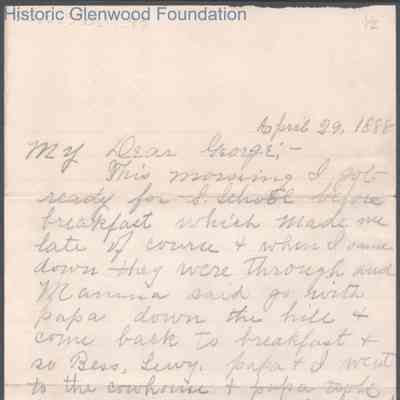 Historic Glenwood Foundation
April 29, 1888
My Dear George;-
This morning I got
ready for S. School before
breakfast which made me
late of course & when I came
down they were through and
Mamma said go with
papa down the hill &
come back to breakfast &
so Bess, Lewy, papa & I went
to the cowhouse & papa